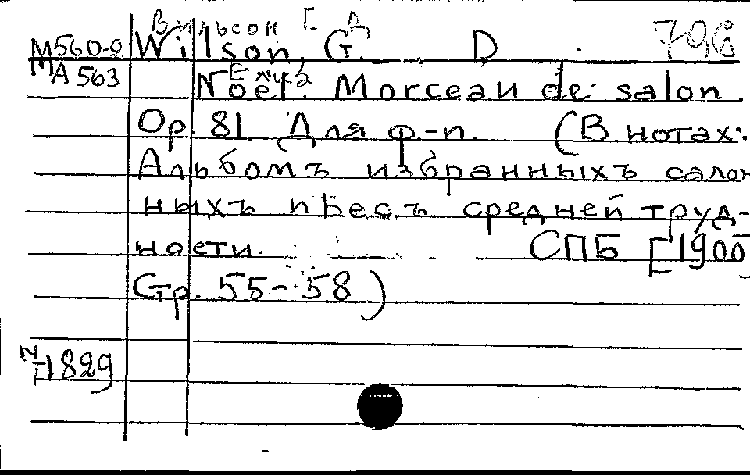 Вильсон Г Д
M560-2 Wilson, G. D. 798
MA 563 Noël. Morceau de salon.
Елка
Op. 81 Для ф-п. (В нотах:
Альбомъ избранныхъ салон
ныхъ пьесъ средней труд-
ности. СПБ [1900]
Стр. 55-58)
N-1829